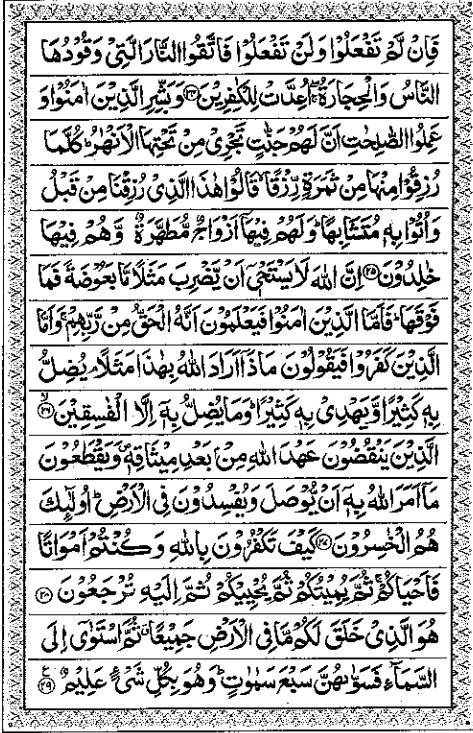 فَاِنْ لَّمْ تَفْعَلُوْا وَلَنْ تَفْعَلُوْا فَاتَّقُوا النَّارَ الَّتِىْ وَقُوْدُهَا
النَّاسُ وَالْحِجَارَةُ ۖۚ اُعِدَّتْ لِلْكٰفِرِيْنَ ﴿۲۴﴾ وَبَشِّرِ الَّذِيْنَ اٰمَنُوْا وَ
عَمِلُوا الصّٰلِحٰتِ اَنَّ لَهُمْ جَنّٰتٍ تَجْرِىْ مِنْ تَحْتِهَا الْاَنْهٰرُ ؕ كُلَّمَا
رُزِقُوْا مِنْهَا مِنْ ثَمَرَةٍ رِّزْقًا ۙ قَالُوْا هٰذَا الَّذِىْ رُزِقْنَا مِنْ قَبْلُ
وَاُتُوْا بِهٖ مُتَشَابِهًا ؕ وَلَهُمْ فِيْهَآ اَزْوَاجٌ مُّطَهَّرَةٌ ۙ وَّهُمْ فِيْهَا
خٰلِدُوْنَ ﴿۲۵﴾ اِنَّ اللّٰهَ لَا يَسْتَحْىٖٓ اَنْ يَّضْرِبَ مَثَلًا مَّا بَعُوْضَةً فَمَا
فَوْقَهَا ؕ فَاَمَّا الَّذِيْنَ اٰمَنُوْا فَيَعْلَمُوْنَ اَنَّهُ الْحَقُّ مِنْ رَّبِّهِمْ ۚ وَاَمَّا
الَّذِيْنَ كَفَرُوْا فَيَقُوْلُوْنَ مَاذَآ اَرَادَ اللّٰهُ بِهٰذَا مَثَلًا ۘ يُضِلُّ
بِهٖ كَثِيْرًا وَّيَهْدِىْ بِهٖ كَثِيْرًا ؕ وَمَا يُضِلُّ بِهٖٓ اِلَّا الْفٰسِقِيْنَ ﴿۲۶﴾ ۙ
الَّذِيْنَ يَنْقُضُوْنَ عَهْدَ اللّٰهِ مِنْۢ بَعْدِ مِيْثَاقِهٖ ۪ وَيَقْطَعُوْنَ
مَآ اَمَرَ اللّٰهُ بِهٖٓ اَنْ يُّوْصَلَ وَيُفْسِدُوْنَ فِى الْاَرْضِ ؕ اُولٰٓئِكَ
هُمُ الْخٰسِرُوْنَ ﴿۲۷﴾ كَيْفَ تَكْفُرُوْنَ بِاللّٰهِ وَكُنْتُمْ اَمْوَاتًا
فَاَحْيَاكُمْ ۚ ثُمَّ يُمِيْتُكُمْ ثُمَّ يُحْيِيْكُمْ ثُمَّ اِلَيْهِ تُرْجَعُوْنَ ﴿۲۸﴾
هُوَ الَّذِىْ خَلَقَ لَكُمْ مَّا فِى الْاَرْضِ جَمِيْعًا ۗ ثُمَّ اسْتَوٰٓى اِلَى
السَّمَآءِ فَسَوّٰىهُنَّ سَبْعَ سَمٰوٰتٍ ؕ وَهُوَ بِكُلِّ شَىْءٍ عَلِيْمٌ ﴿۲۹﴾ ع